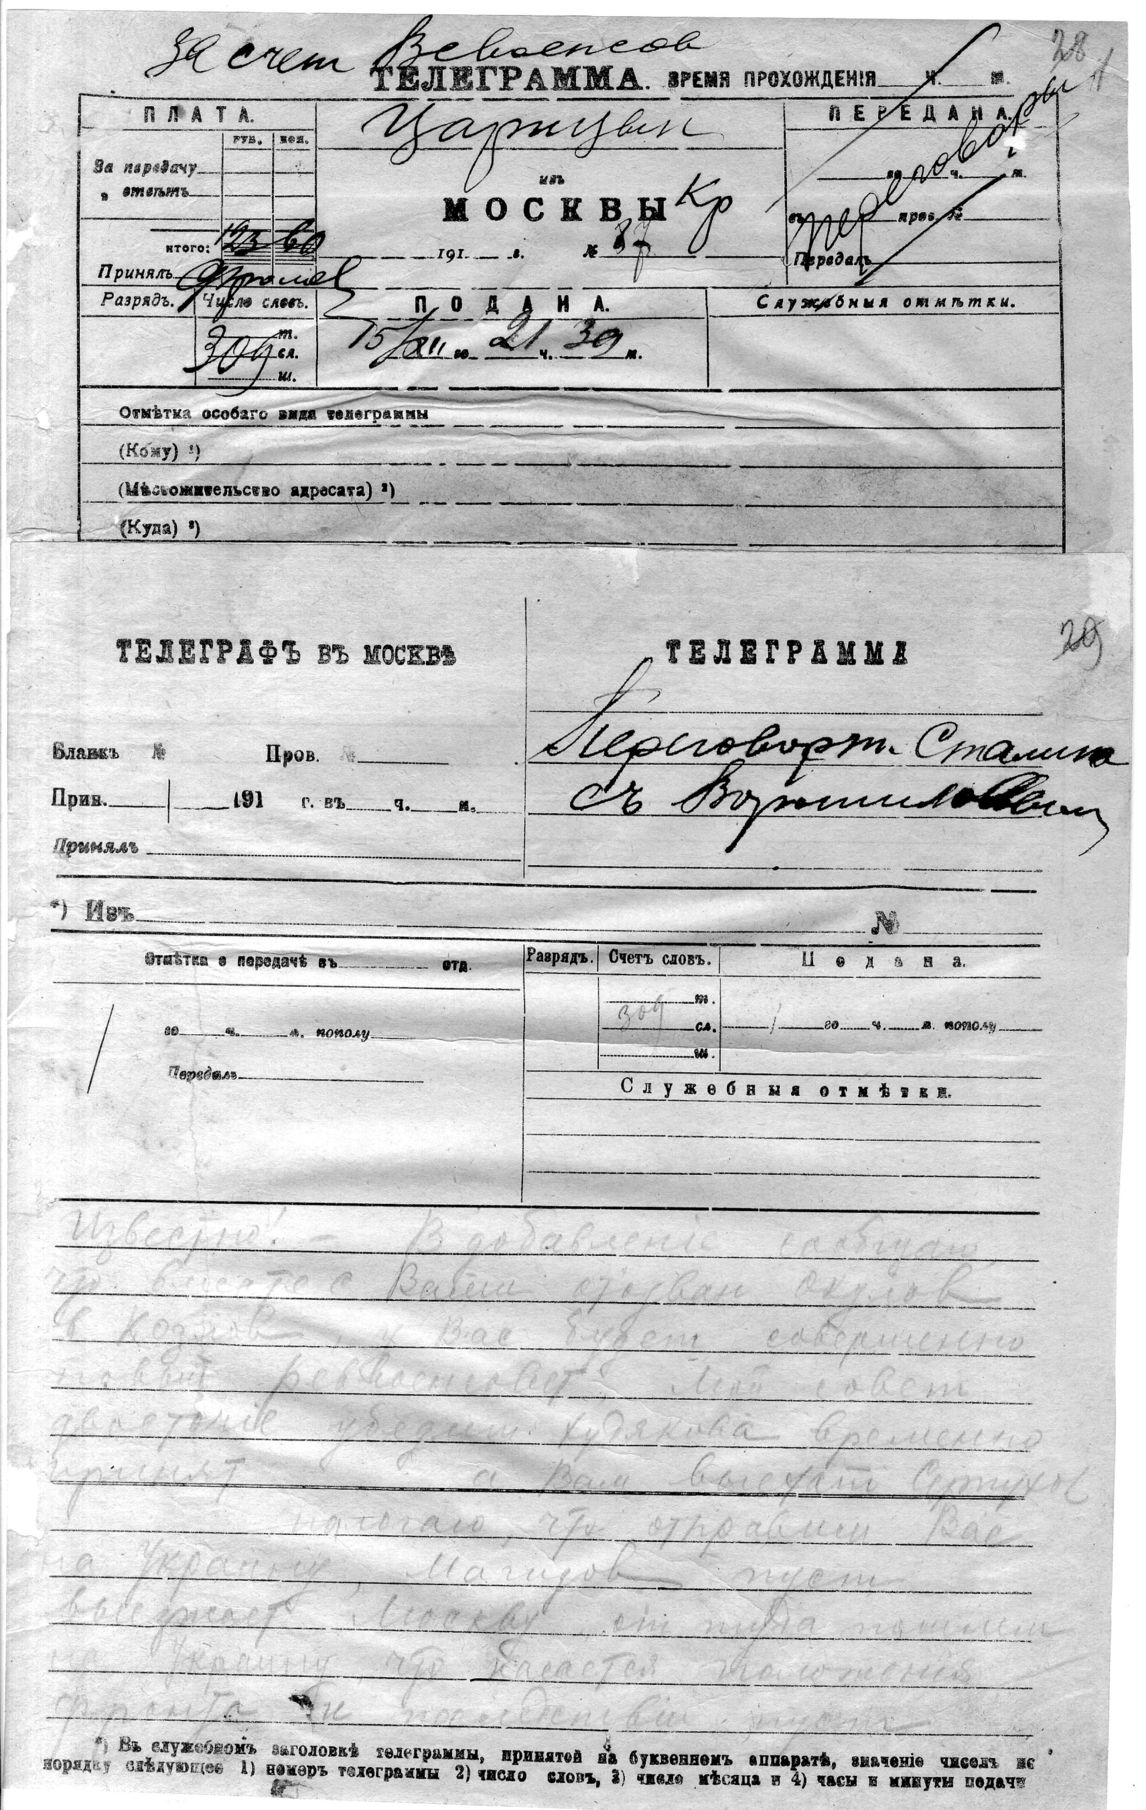 За счет Всвоенсов
28
ТЕЛЕГРАММА. ВРЕМЯ ПРОХОЖДЕНІЯ ч. м.
ПЛАТА.
руб. коп.
За передачу
„ отвѣтъ
итого: 123 60
Принялъ
Царицын
изъ
МОСКВЫ Кр
191 г. № 87
ПЕРЕДАНА.
го ч. м.
въ пров. №
Передалъ
переговоры
Разрядъ. Число словъ.
309 т.
сл.
ш.
ПОДАНА.
15/XII го 21 ч. 39 м.
Служебныя отмѣтки.
Отмѣтка особаго вида телеграммы
(Кому) ¹)
(Мѣстожительство адресата) ²)
(Куда) ³)
29
ТЕЛЕГРАФЪ ВЪ МОСКВѢ
ТЕЛЕГРАММА
Бланкъ № Пров. №
Прин. 191 г. въ ч. м.
Принялъ
Переговорт. Сталина
съ Ворошиловым
*) Изъ №
Отмѣтка о передачѣ въ отд.
го ч. м. пополу
Передалъ
Разрядъ. Счетъ словъ. Подана.
т.
309 сл.
ш.
го ч. м. пополу
Служебныя отмѣтки.
Известно! — В добавление сообщаю
что вместе с Вами отозван Окулов
в Козлов, у Вас будет совершенно
новый реввоенсовет. Мой совет
убедить Худякова временно
принят а Вам выехать Серпухов
полагаю, что отправим Вас
на Украину, Магидов пуст
выезжает Москву, от туда пошлем
на Украину, что касается положения
фронта и последствий
*) Въ служебномъ заголовкѣ телеграммы, принятой на буквенномъ аппаратѣ, значеніе чиселъ по
порядку слѣдующее 1) номеръ телеграммы 2) число словъ, 3) число мѣсяца и 4) часы и минуты подачи